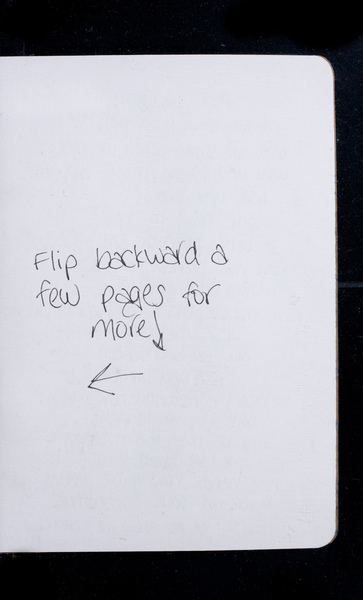 Flip backward a
few pages for
more!